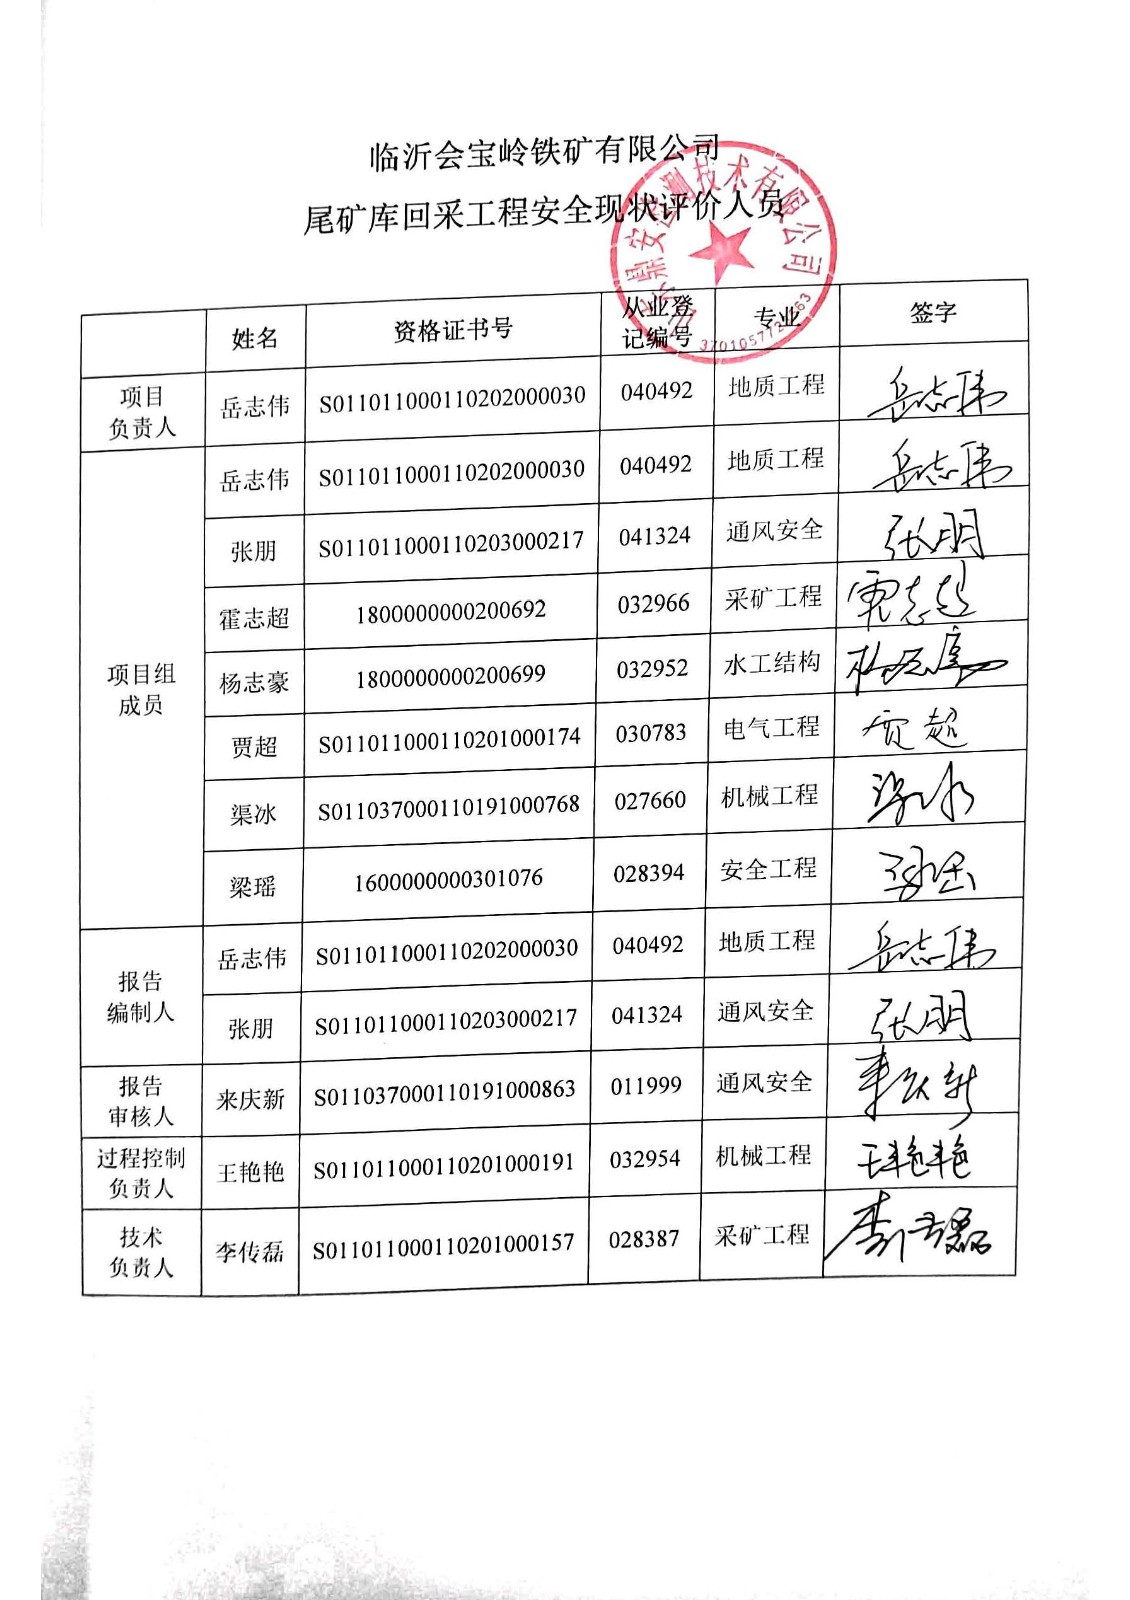 临沂会宝岭铁矿有限公司
尾矿库回采工程安全现状评价人员
安检测技术有限公司
姓名 资格证书号 从业登记编号 专业 签字
项目负责人 岳志伟 S011011000110202000030 040492 地质工程 岳志伟
项目组成员 岳志伟 S011011000110202000030 040492 地质工程 岳志伟
张朋 S011011000110203000217 041324 通风安全 张朋
霍志超 1800000000200692 032966 采矿工程 霍志超
杨志豪 1800000000200699 032952 水工结构 杨志豪
贾超 S011011000110201000174 030783 电气工程 贾超
渠冰 S011037000110191000768 027660 机械工程 渠冰
梁瑶 1600000000301076 028394 安全工程 梁瑶
报告编制人 岳志伟 S011011000110202000030 040492 地质工程 岳志伟
张朋 S011011000110203000217 041324 通风安全 张朋
报告审核人 来庆新 S011037000110191000863 011999 通风安全 来庆新
过程控制负责人 王艳艳 S011011000110201000191 032954 机械工程 王艳艳
技术负责人 李传磊 S011011000110201000157 028387 采矿工程 李传磊